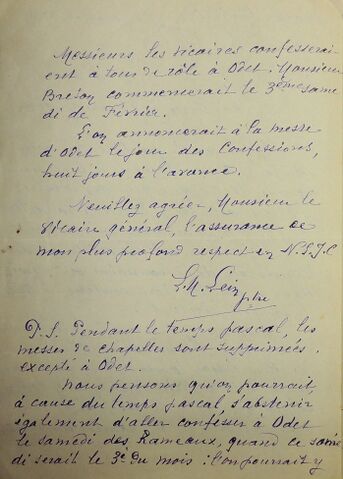 Messieurs les vicaires confesserai
ent à tour de rôle à Odet. Monsieur
Breton commencerait le 3ème same
di de Février.
L'on annoncerait à la messe
d'Odet le jour des Confessions,
huit jours à l'avance.
Veuillez agréer, Monsieur le
Vicaire général, l'assurance de
mon plus profond respect en N.S.J.C
L.M. Lein
ptre
P.S. Pendant le temps pascal, les
messes de chapelles sont supprimées,
excepté à Odet.
Nous pensons qu'on pourrait,
à cause du temps pascal, s'abstenir
également d'aller confesser à Odet
le samedi des Rameaux, quand ce same
di serait le 3e du mois : l'on pourrait y